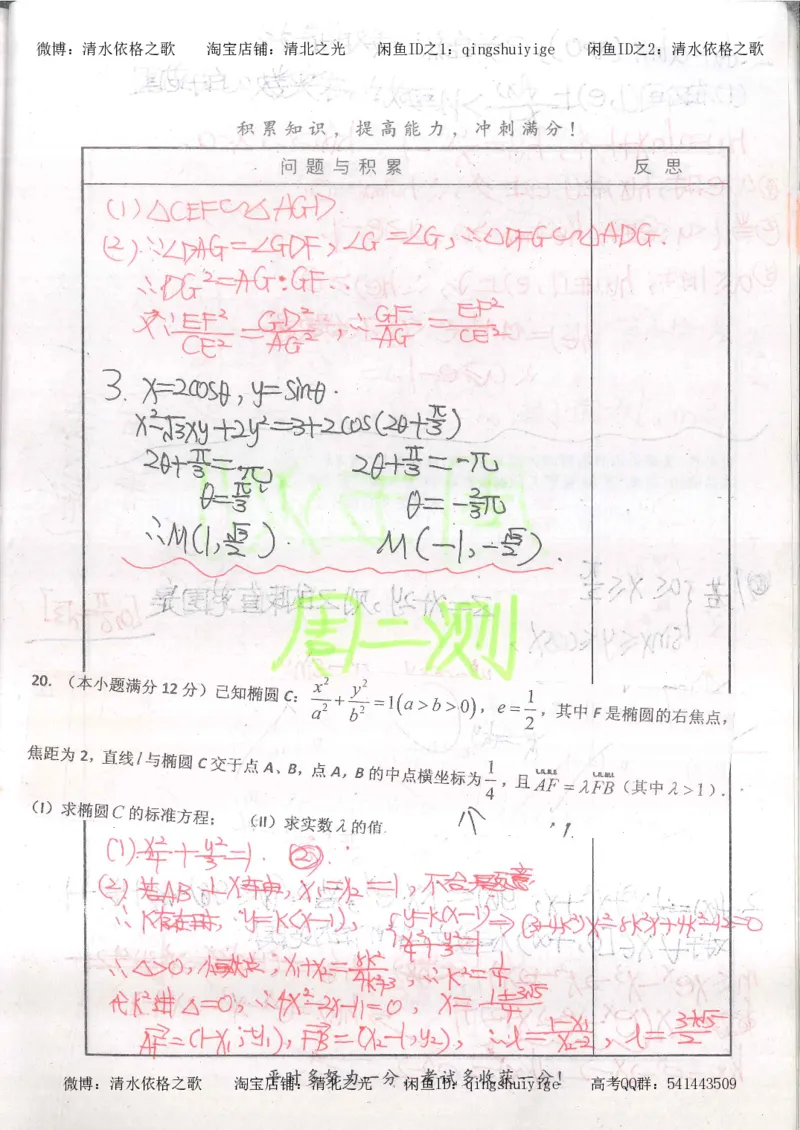 微博：清水依格之歌 淘宝店铺：清北之光 闲鱼ID之1：qingshuiyige 闲鱼ID之2：清水依格之歌
积累知识，提高能力，冲刺满分！
问题与积累 反思
(1) △CEF∽△AGD.
(2) ∵∠DAG=∠GDF, ∠G=∠G, ∴△DFG∽△ADG.
∴DG²=AG·GF.
又∵EF²/CE²=GD²/AG², ∴GF/AG=EF²/CE²
3. x=2cosθ, y=sinθ.
x²-√3xy+2y²=3+2cos(2θ+π/3)
2θ+π/3=π 2θ+π/3=-π
θ=π/3 θ=-2/3π
∴M(1, √3/2). M(-1, -√3/2).
周二测
20.（本小题满分12分）已知椭圆C：x²/a²+y²/b²=1(a>b>0)，e=1/2，其中F是椭圆的右焦点，
焦距为2，直线l与椭圆C交于点A、B，点A，B的中点横坐标为1/4，且AF=λFB（其中λ>1）.
(I) 求椭圆C的标准方程； (II) 求实数λ的值.
(1) x²/4+y²/3=1. ②
(2) 若AB⊥x轴, x₁=x₂=1, 不合题意
∴K存在时, y=k(x-1), {y=k(x-1) x²/4+y²/3=1 ⇒(3+4k²)x²-8k²x+4k²-12=0
∴△>0, 恒成立, x₁+x₂=8k²/4k²+3, ∴k²=1/4
代k²进△=0, ∴4x²-2x-11=0, x=1±3√5/4
AF=(1-x₁, -y₁), FB=(x₂-1, y₂),
微博：清水依格之歌 淘宝店铺：清北之光 闲鱼ID：qingshuiyige 高考QQ群：541443509
平时多努力一分，考试多收获一分！